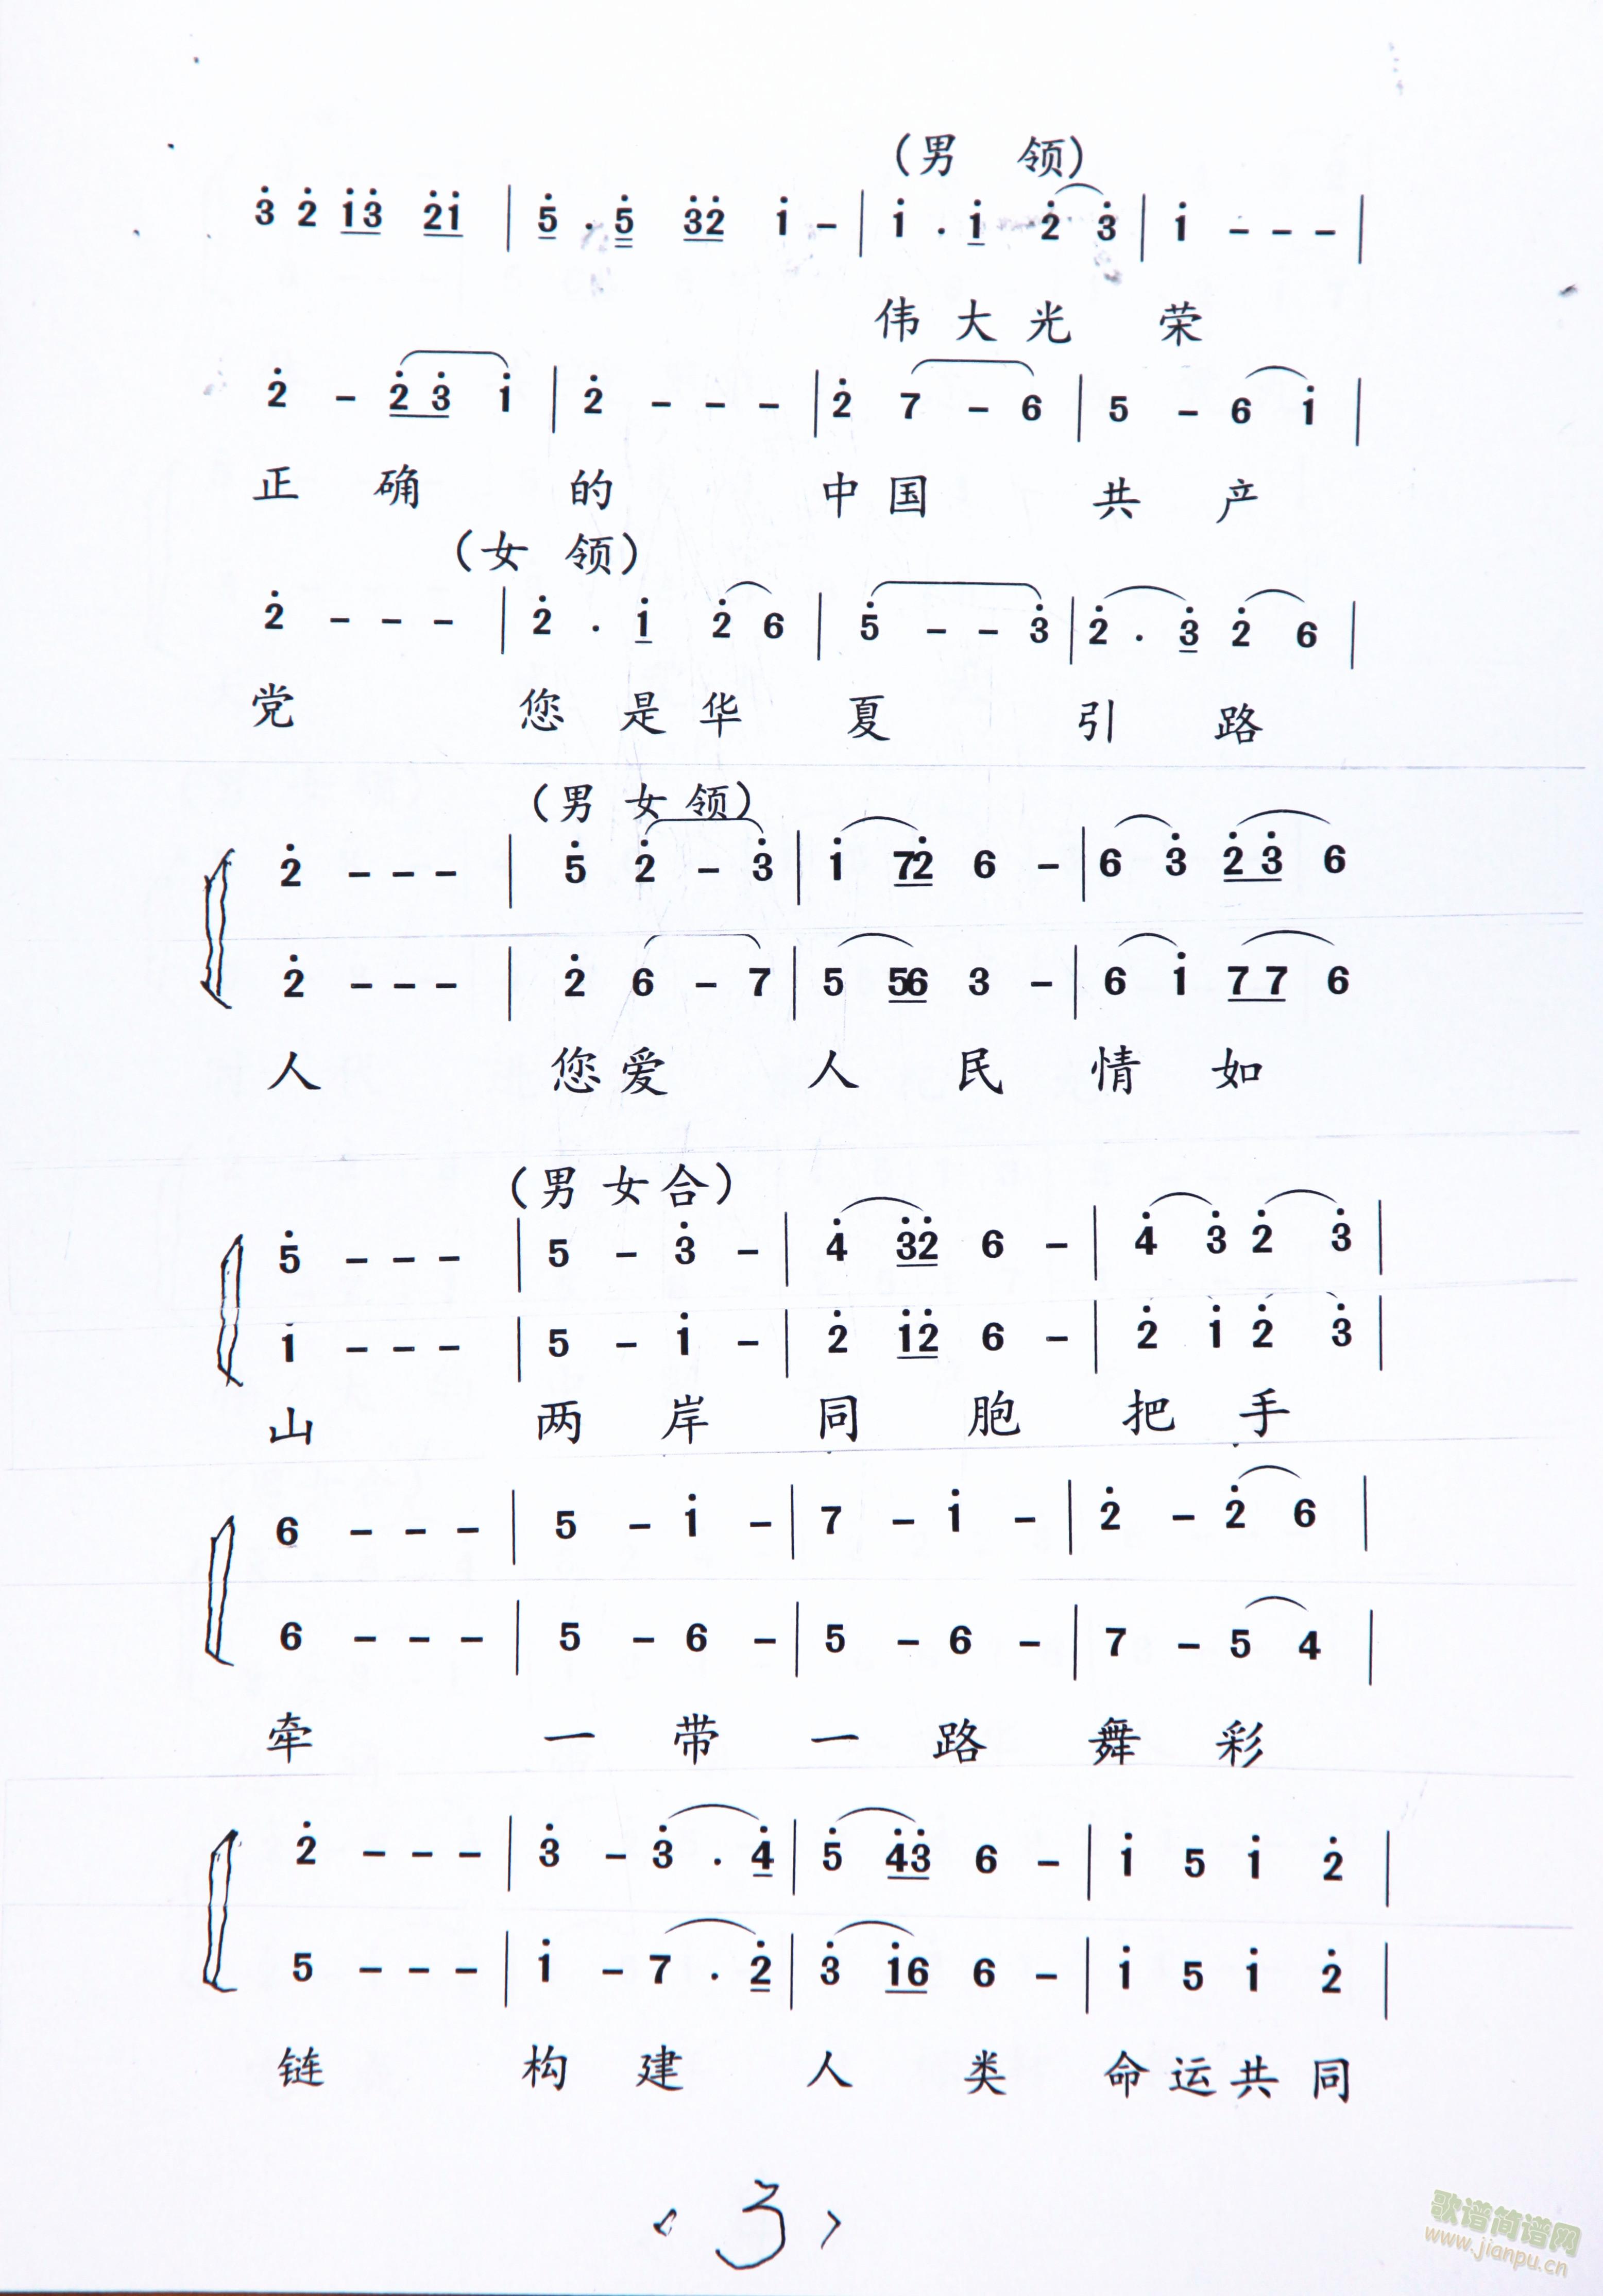 (男 领)
3̇ 2̇ 1̇3̇ 2̇1̇ | 5̇ . 5̇ 3̇2̇ 1̇ – | 1̇ . 1̇ 2̇ 3̇ | 1̇ – – – |
伟 大 光 荣
2̇ – 2̇ 3̇ 1̇ | 2̇ – – – | 2̇ 7 – 6 | 5 – 6 1̇ |
正 确 的 中 国 共 产
(女 领)
2̇ – – – | 2̇ . 1̇ 2̇ 6 | 5̇ – – 3̇ | 2̇ . 3̇ 2̇ 6 |
党 您 是 华 夏 引 路
(男 女 领)
2̇ – – – | 5̇ 2̇ – 3̇ | 1̇ 72̇ 6 – | 6 3̇ 2̇ 3̇ 6
2̇ – – – | 2̇ 6 – 7 | 5 56 3 – | 6 1̇ 7 7 6
人 您 爱 人 民 情 如
(男 女 合)
5̇ – – – | 5 – 3̇ – | 4̇ 3̇2̇ 6 – | 4̇ 3̇ 2̇ 3̇ |
1̇ – – – | 5 – 1̇ – | 2̇ 1̇2̇ 6 – | 2̇ 1̇ 2̇ 3̇ |
山 两 岸 同 胞 把 手
6 – – – | 5 – 1̇ – | 7 – 1̇ – | 2̇ – 2̇ 6 |
6 – – – | 5 – 6 – | 5 – 6 – | 7 – 5 4 |
牵 一 带 一 路 舞 彩
2̇ – – – | 3̇ – 3̇ . 4̇ | 5̇ 4̇3̇ 6 – | 1̇ 5 1̇ 2̇ |
5 – – – | 1̇ – 7 . 2̇ | 3̇ 1̇6 6 – | 1̇ 5 1̇ 2̇ |
链 构 建 人 类 命 运 共 同
<3>
歌谱简谱网
www.jianpu.cn